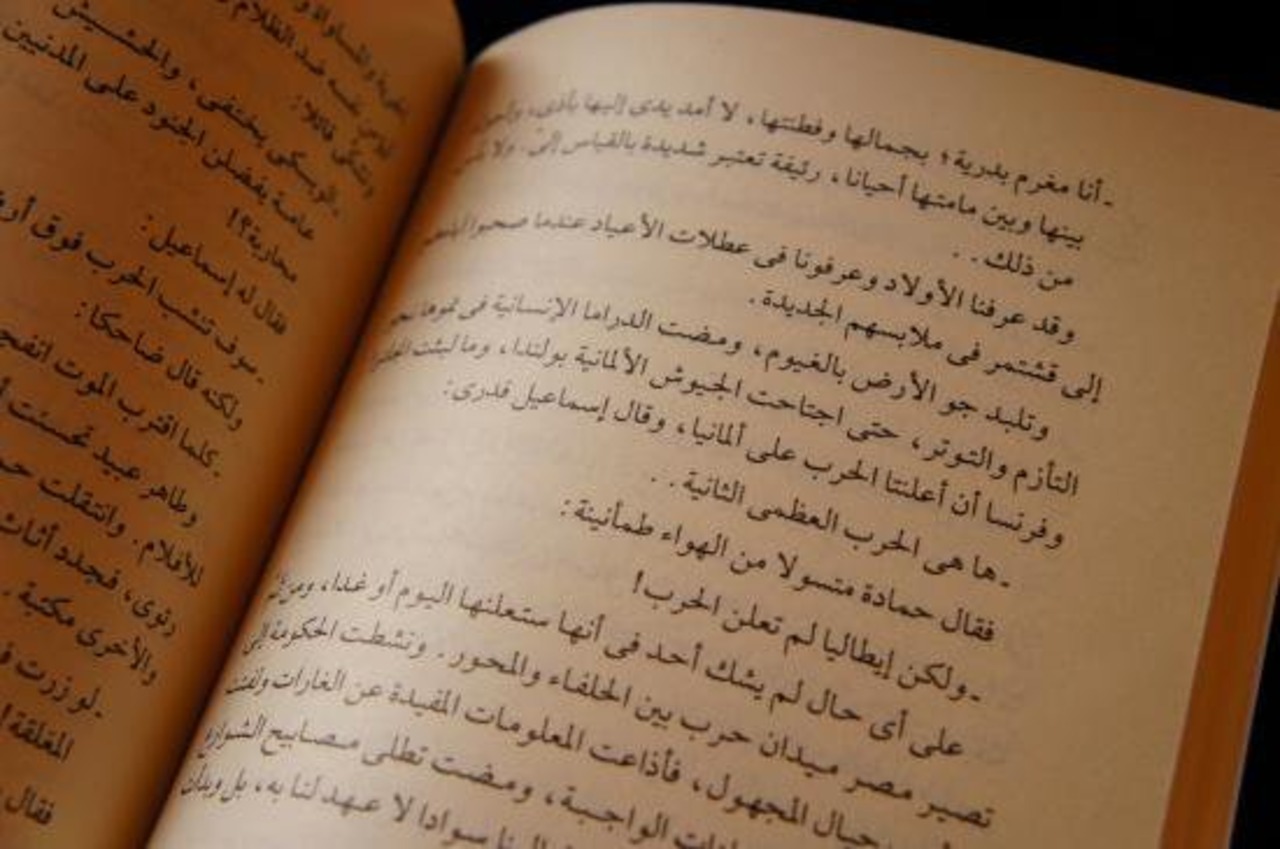 - أنا مغرم بدرية؛ بجمالها وفطنتها، لا أمد يدى إليها بأذى،
بينها وبين مامتها أحيانا، رئيفة تعتبر شديدة بالقياس إلىّ. ولا
من ذلك..
وقد عرفنا الأولاد وعرفونا فى عطلات الأعياد عندما صحبوا
إلى قشتمر فى ملابسهم الجديدة.
وتلبد جو الأرض بالغيوم، ومضت الدراما الإنسانية فى نموها نحو
التأزم والتوتر، حتى اجتاحت الجيوش الألمانية بولندا، وما لبثت
وفرنسا أن أعلنتا الحرب على ألمانيا، وقال إسماعيل قدرى:
- ها هى الحرب العظمى الثانية..
فقال حمادة متسولا من الهواء طمأنينة:
- ولكن إيطاليا لم تعلن الحرب!
على أى حال لم يشك أحد فى أنها ستعلنها اليوم أو غدا،
تصير مصر ميدان حرب بين الحلفاء والمحور. ونشطت الحكومة إلى
حيال المجهول، فأذاعت المعلومات المفيدة عن الغارات
الواجبة، ومضت تطلى مصابيح الشوارع
سوادا لا عهد لنا به، بل
الظلام
وتشكّى قائلا:
- الويسكى يختفى، والحشيش
عامة يفضلن الجنود على المدنيين
محاربة؟!
فقال له إسماعيل:
- سوف تنشب الحرب فوق
ولكنه قال ضاحكا:
- كلما اقترب الموت
وطاهر عبيد تحسنت
للأفلام. وانتقلت
فجدد أثاث
والأخرى مكتبة.
- لو زرت
المغلقة
فقال